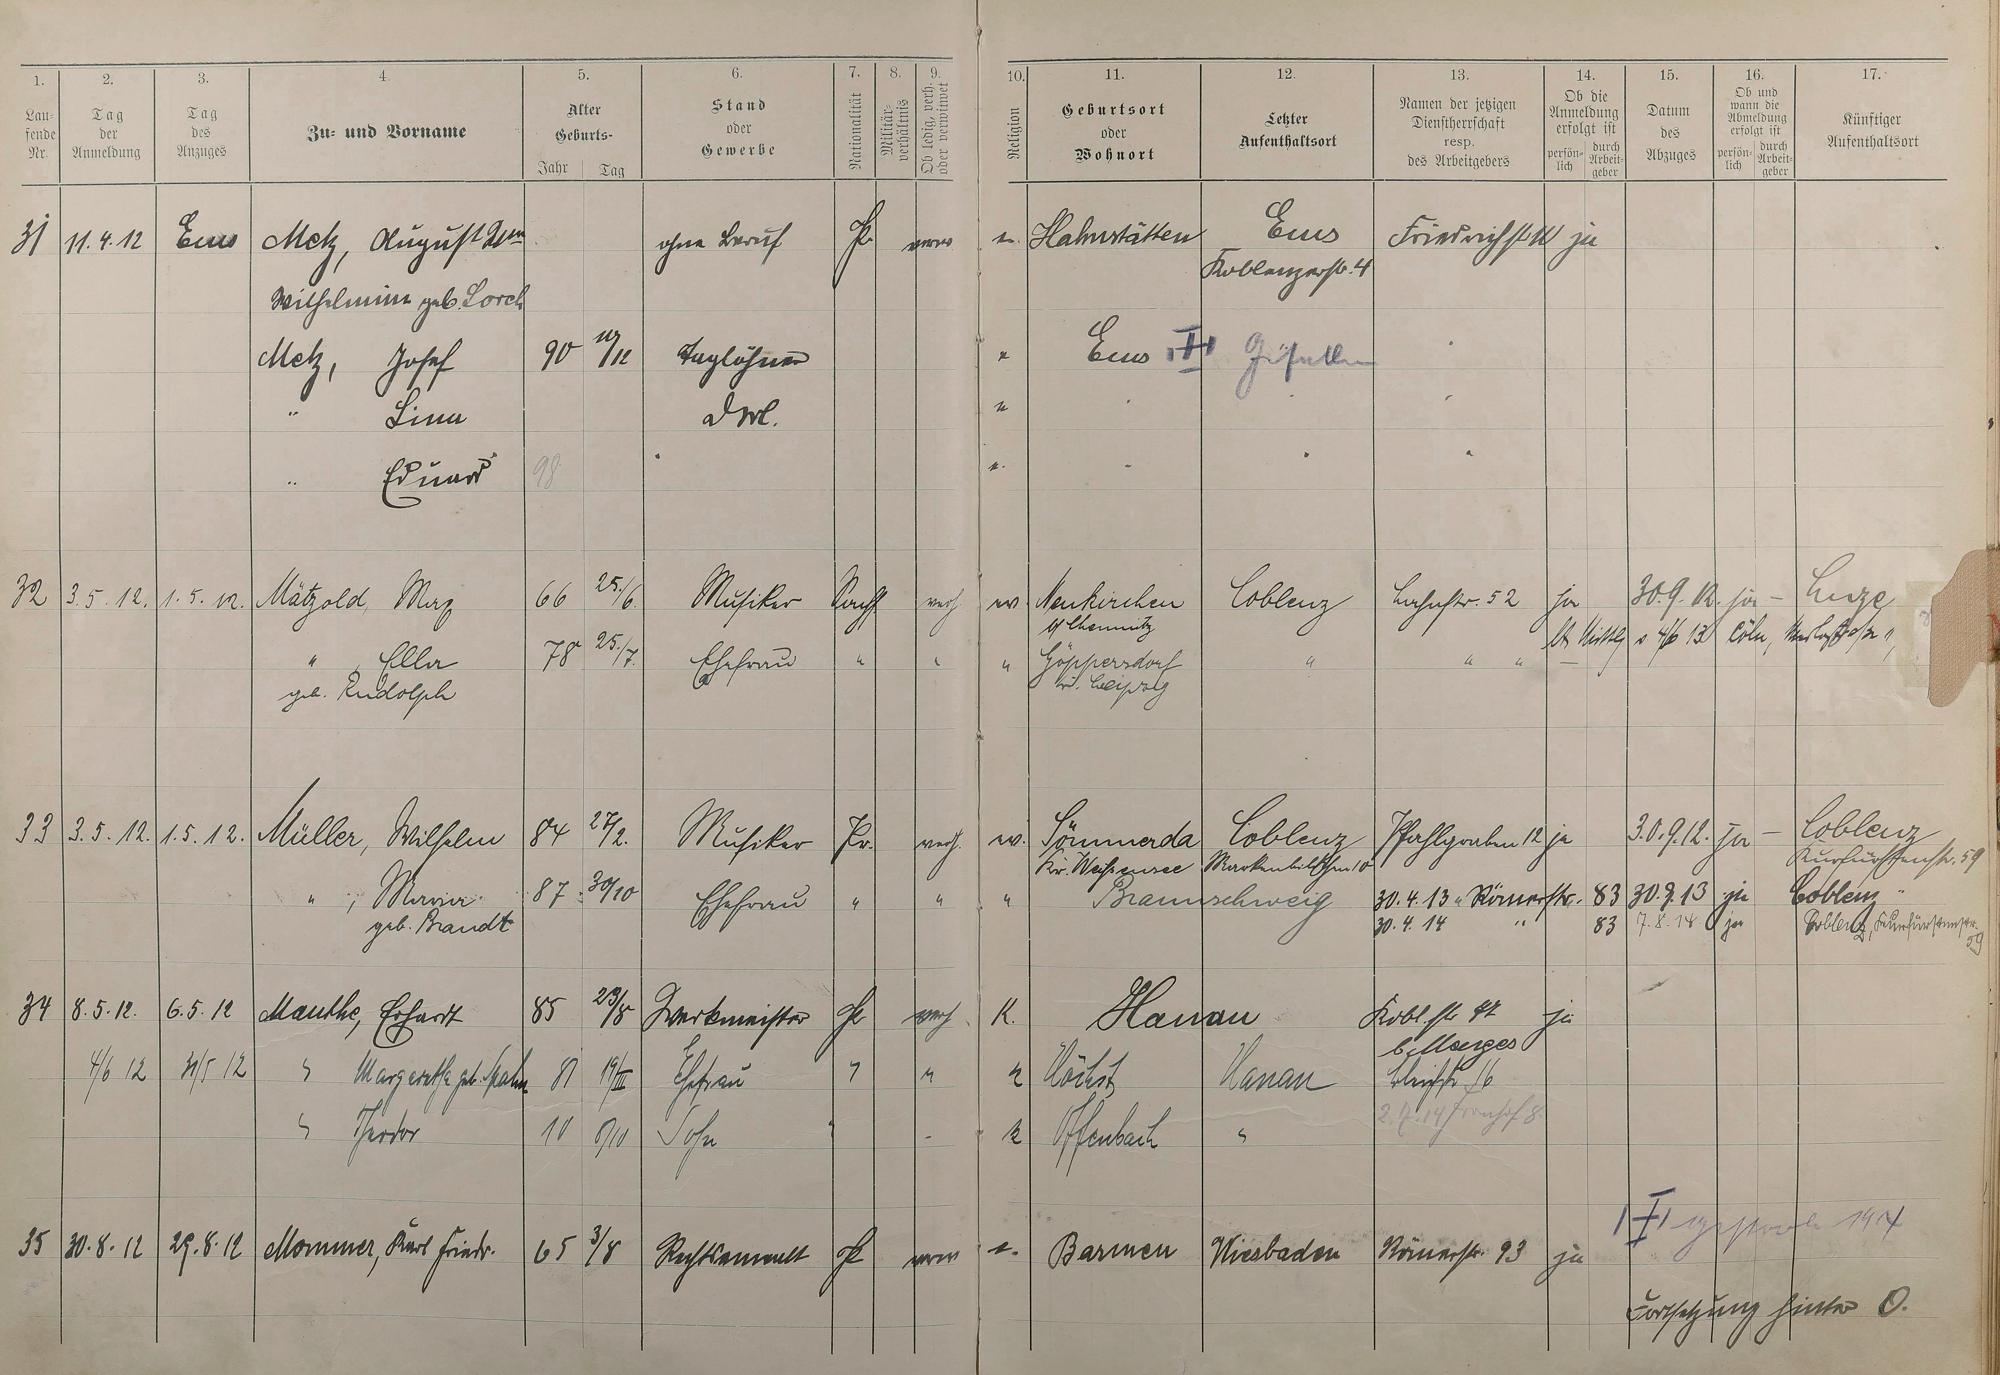 1. 2. 3. 4. 5. 6. 7. 8. 9. 10. 11. 12. 13. 14. 15. 16. 17.
Laufende Nr.
Tag der Anmeldung
Tag des Anzuges
Zu- und Vorname
Alter Geburts-
Jahr Tag
Stand oder Gewerbe
Nationalität
Militär-verhältnis
Ob ledig, verh. oder verwitwet
Religion
Geburtsort oder Wohnort
Letzter Aufenthaltsort
Namen der jetzigen Dienstherrschaft resp. des Arbeitgebers
Ob die Anmeldung erfolgt ist
persön-lich durch Arbeit-geber
Datum des Abzuges
Ob und wann die Abmeldung erfolgt ist
persön-lich durch Arbeit-geber
Künftiger Aufenthaltsort
31 11.4.12 Ems Metz, August Wwe ohne Beruf Pr verw e. Hahnstätten Ems Friedrichstr ja
Koblenzerstr. 4
Wilhelmine geb. Lorch
Metz, Josef 90 /12 Taglöhner " Ems gefallen
" Lina "
" Eduard 98 " e. " " "
32 3.5.12. 1.5.12. Mätzold, Max 66 25./6. Musiker Sachs verh ev Neukirchen Coblenz Lahnstr. 52 ja 30.9.12. ja –
b/ Chemnitz
4/6 13 Cöln,
" , Ella 78 25./7. Ehefrau " " " Göppersdorf " " "
geb. Rudolph Leipzig
33 3.5.12. 1.5.12. Müller, Wilhelm 84 27/2. Musiker Pr. verh. ev. Sömmerda Coblenz Pfahlgraben 12 ja 30.9.12. ja – Coblenz
Kr. Weißensee Markenbildchen 10 Kurfürstenstr. 59
" , Maria 87 30/10 Ehefrau " " " Braunschweig 30.4.13 " Römerstr. 83 30.9.13 ja Coblenz "
geb. Brandt 30.4.14 " 83 7.8.14 ja Coblenz, Kurfürstenstr. 59
34 8.5.12. 6.5.12 Manthe, Erhardt 85 23/8 Werkmeister Pr verh. K. Hanau Kobl.str 47 ja
b. Marges
4/6 12 31/5 12 " Margaretha geb. 81 19/III Ehefrau " " " Höchst Hanau
" Theodor 10 /10 Sohn " - k Offenbach " 2.7.14 Fronhof 8.
35 30.8.12 29.8.12 Mommer, Karl Friedr. 65 3/8 Rechtsanwalt Pr verw e. Barmen Wiesbaden Römerstr. 93 ja
Fortsetzung hinter O.